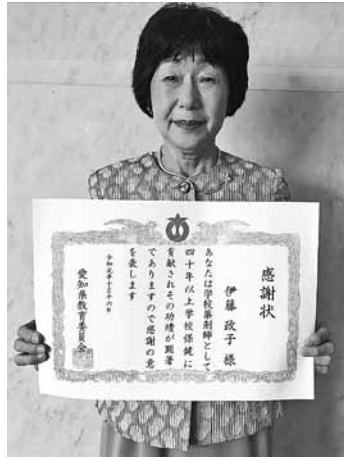 感謝状
伊藤政子様
あなたは学校薬剤師として
四十年以上学校保健に
貢献されその功績が顕著
でありますので感謝の意
を表します
令和元年十月十六日
愛知県教育委員会